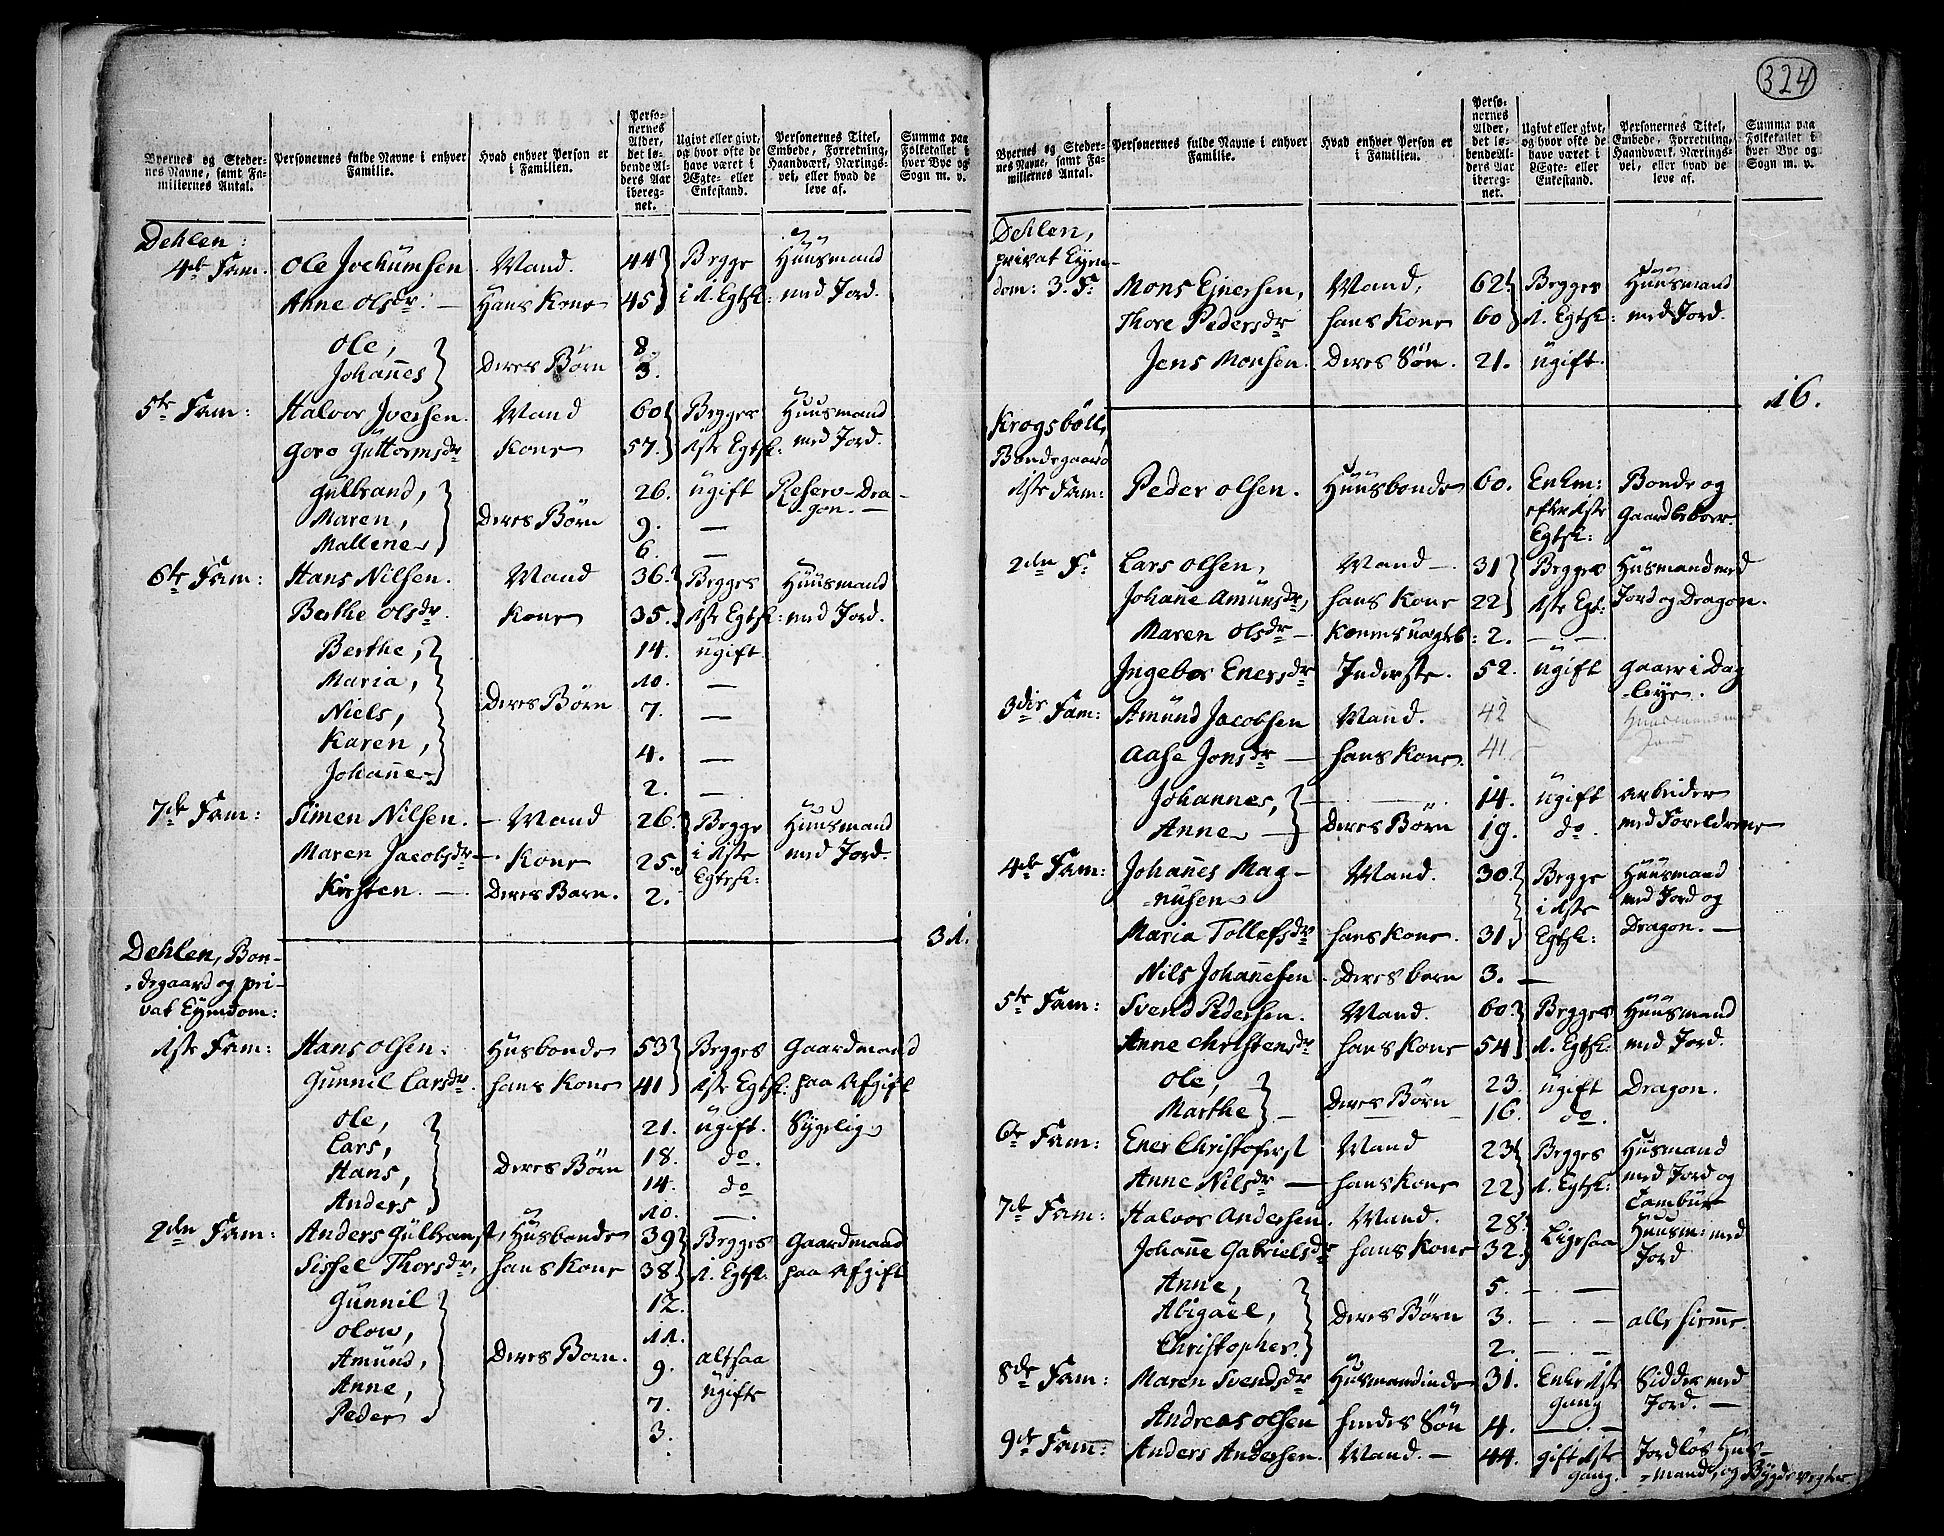 324
Byernes og Steder-
nes Navne, samt Fa-
miliernes Antal.
Personernes fulde Navne i enhver
Familie.
Hvad enhver Person er
i Familien.
Perso-
nernes
Alder,
det lø-
bende Al-
ders Aar
iberegnet.
Ugivt eller givt,
og hvor ofte de
have været i
Ægte- eller
Enkestand.
Personernes Titel,
Embede, Forretning,
Haandværk, Nærings-
vei, eller hvad de
leve af.
Summa paa
Folketallet i
hver Bye og
Sogn m. v.
Dehlen:
4de Fam. Ole Jochumsen Mand. 44 Begge Huusmand
Anne Olsdr: — Hans Kone 45 i 1. Egtsk: med Jord.
Ole, 8.
Johañes Deres Børn 3.
5te Fam: Halvor Iversen. Mand 60 Begges Huusmand
Goro Guttormsdr Kone 57. 1ste Egtsk: med Jord.
Gulbrand, 26. ugift Reserv-Dra-
gon. —
Maren, Deres Børn 9. —
Mallene 6. —
6te Fam: Hans Nilsen. Mand 36. Begges Huusmand
Berthe Olsdr. Kone 35. 1ste Egtsk: med Jord.
Berthe, 14. ugift
Maria, 10. —
Niels, Deres Børn 7. —
Karen, 4. —
Johañe 2. —
7de Fam: Simen Nilsen. — Mand 26. Begge Huusmand
Maren Jacobsdr —. Kone 25. i 1ste med Jord.
Egtsk:
Kirsten. —. Deres Barn. 2.
31.
Dehlen, Bon-
degaard og pri-
vat Eyendom:
1ste Fam: Hans Olsen: Husbonde 53 Begges Gaardmand
Gunnil Larsdr. hans Kone 41 1ste Egtsk: paa Afgift
Ole, 21. ugift. Sygelig
Lars, 18. do.
Hans, Deres Børn 14. do
Anders 10. —
2den Fam: Anders Gulbranst, Husbonde 39 Begges Gaardmand
Sissel Thorsdr, hans Kone 38. 1. Egtsk: paa Afgift
Gunnil 12.
Olow, 11.
Amund, Deres Born. 9. altsaa
Anne, 7. ugifte
Peder 3.
Byernes og Steder-
nes Navne, samt Fa-
miliernes Antal.
Personernes fulde Navne i enhver
Familie.
Hvad enhver Person er
i Familien.
Perso-
nernes
Alder,
det lø-
bende Al-
ders Aar
iberegnet.
Ugivt eller givt,
og hvor ofte de
have været i
Ægte- eller
Enkestand.
Personernes Titel,
Embede, Forretning,
Haandværk, Nærings-
vei, eller hvad de
leve af.
Summa paa
Folketallet i
hver Bye og
Sogn m. v.
Dehlen,
privat Eyen-
dom: 3. F: Mons Ejnersen, Mand, 62. Begges Huusmand
Thore Pedersdr hans Kone 60 1. Egtsk: med Jord.
Jens Monsen. Deres Søn. 21. ugift.
16.
Krogsböll,
Bondegaard
1ste Fam: Peder Olsen. Huusbonde 60. Enkm: Bonde og
efter 1ste Gaardbeboer.
Egtsk:
2den F: Lars Olsen, Mand — 31 Begges Husmand med
Johañe Amunsdr, hans Kone 22 1ste Egt: Jord og Dragon.
Maren Olsdr — Konens uægteb: 2. — —
Ingebor Enersdr Inderste. 52. ugift gaaer i Dag
-leye.
3die Fam: Amund Jacobsen Mand. 42 Huusmand med
Aase Jonsdr — hans Kone. 41 Jord
Johannes, 14. ugift arbeider
Anne — Deres Börn 19. do. med Foreldrene
4de Fam: Johañes Mag- Mand. 30. Begge Huusmand
-nusen i 1ste med Jord og
Maria Tollefsdr hans Kone. 31 Egtsk: Dragon. —
Nils Johañesen - Deres barn 3. —
5te Fam: Svend Pedersen. Mand. 60. Begges Huusmand
Anne Christensdr hans Kone 54 1. Egtsk: med Jord.
Ole, 23. ugift Dragon.
Marthe — Deres Børn 16. do.
6te Fam: Ener Christoferst Mand 23 Begges Husmand
Anne Nilsdr — hans Kone 22 1. Egtsk: med Jord og
Tambur
7de Fam: Halvor Andersen. Mand. 28. Ligesaa Huusm: med
Johañe Gabrielsdr hans Kone 32. Jord
Anne, 5. —
Abigael, Deres Børn 3. — alle hiemme.
Christopher. 2. —
8de Fam: Maren Svendsdr Husmandinde 31. Enke 1ste Sidder med
gang Jord. —
Andreas Olsen hendes Søn 4. —
9de Fam: Anders Andersen. Mand. — 44. gift 1ste Jordløs Huus-
gang. -mand, og Bygdevegter.